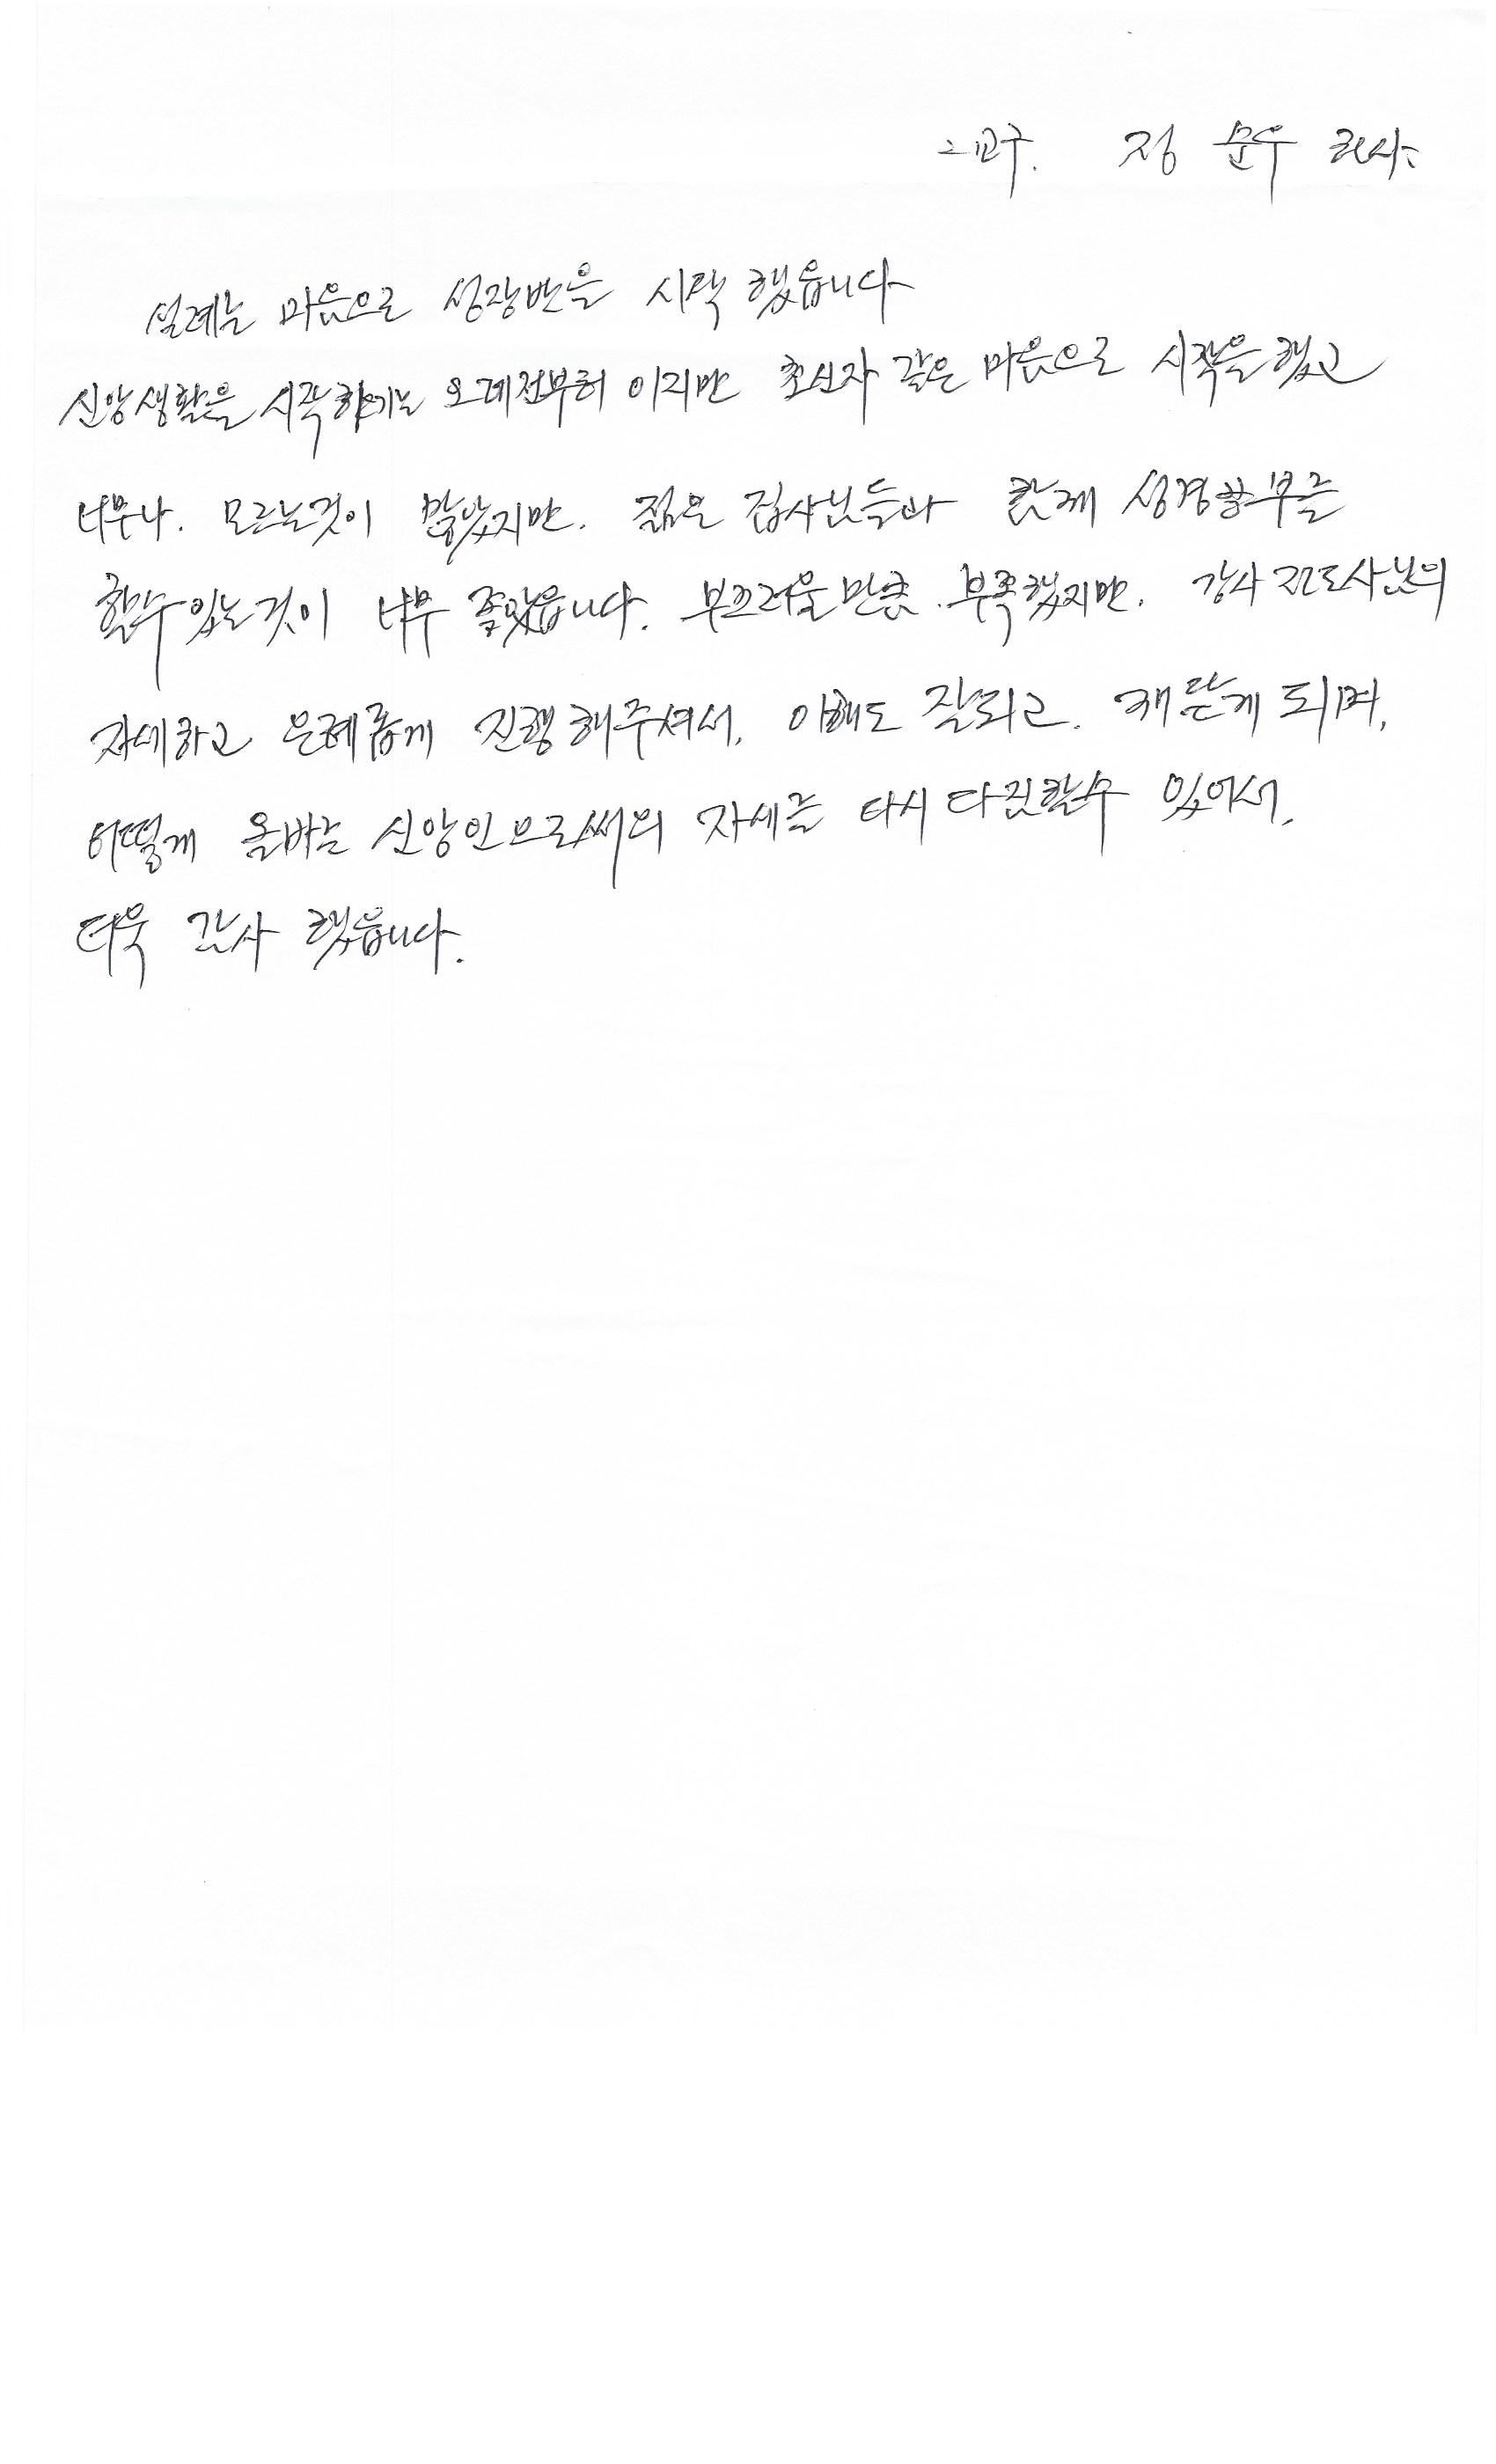 2교구. 정 순우 권사
설레는 마음으로 성장반을 시작 했읍니다
신앙생활을 시작하기는 오래전부터 이지만 초신자 같은 마음으로 시작을 했고
너무나. 모르는것이 많았지만. 젊은 집사님들과 함께 성경공부를
할수 있는것이 너무 좋았읍니다. 부끄러울만큼. 부족했지만. 강사 전도사님의
자세하고 은혜롭게 진행해주셔서. 이해도 잘되고. 깨닫게 되며,
어떻게 올바른 신앙인으로써의 자세를 다시 다짐할수 있어서,
더욱 감사 했읍니다.